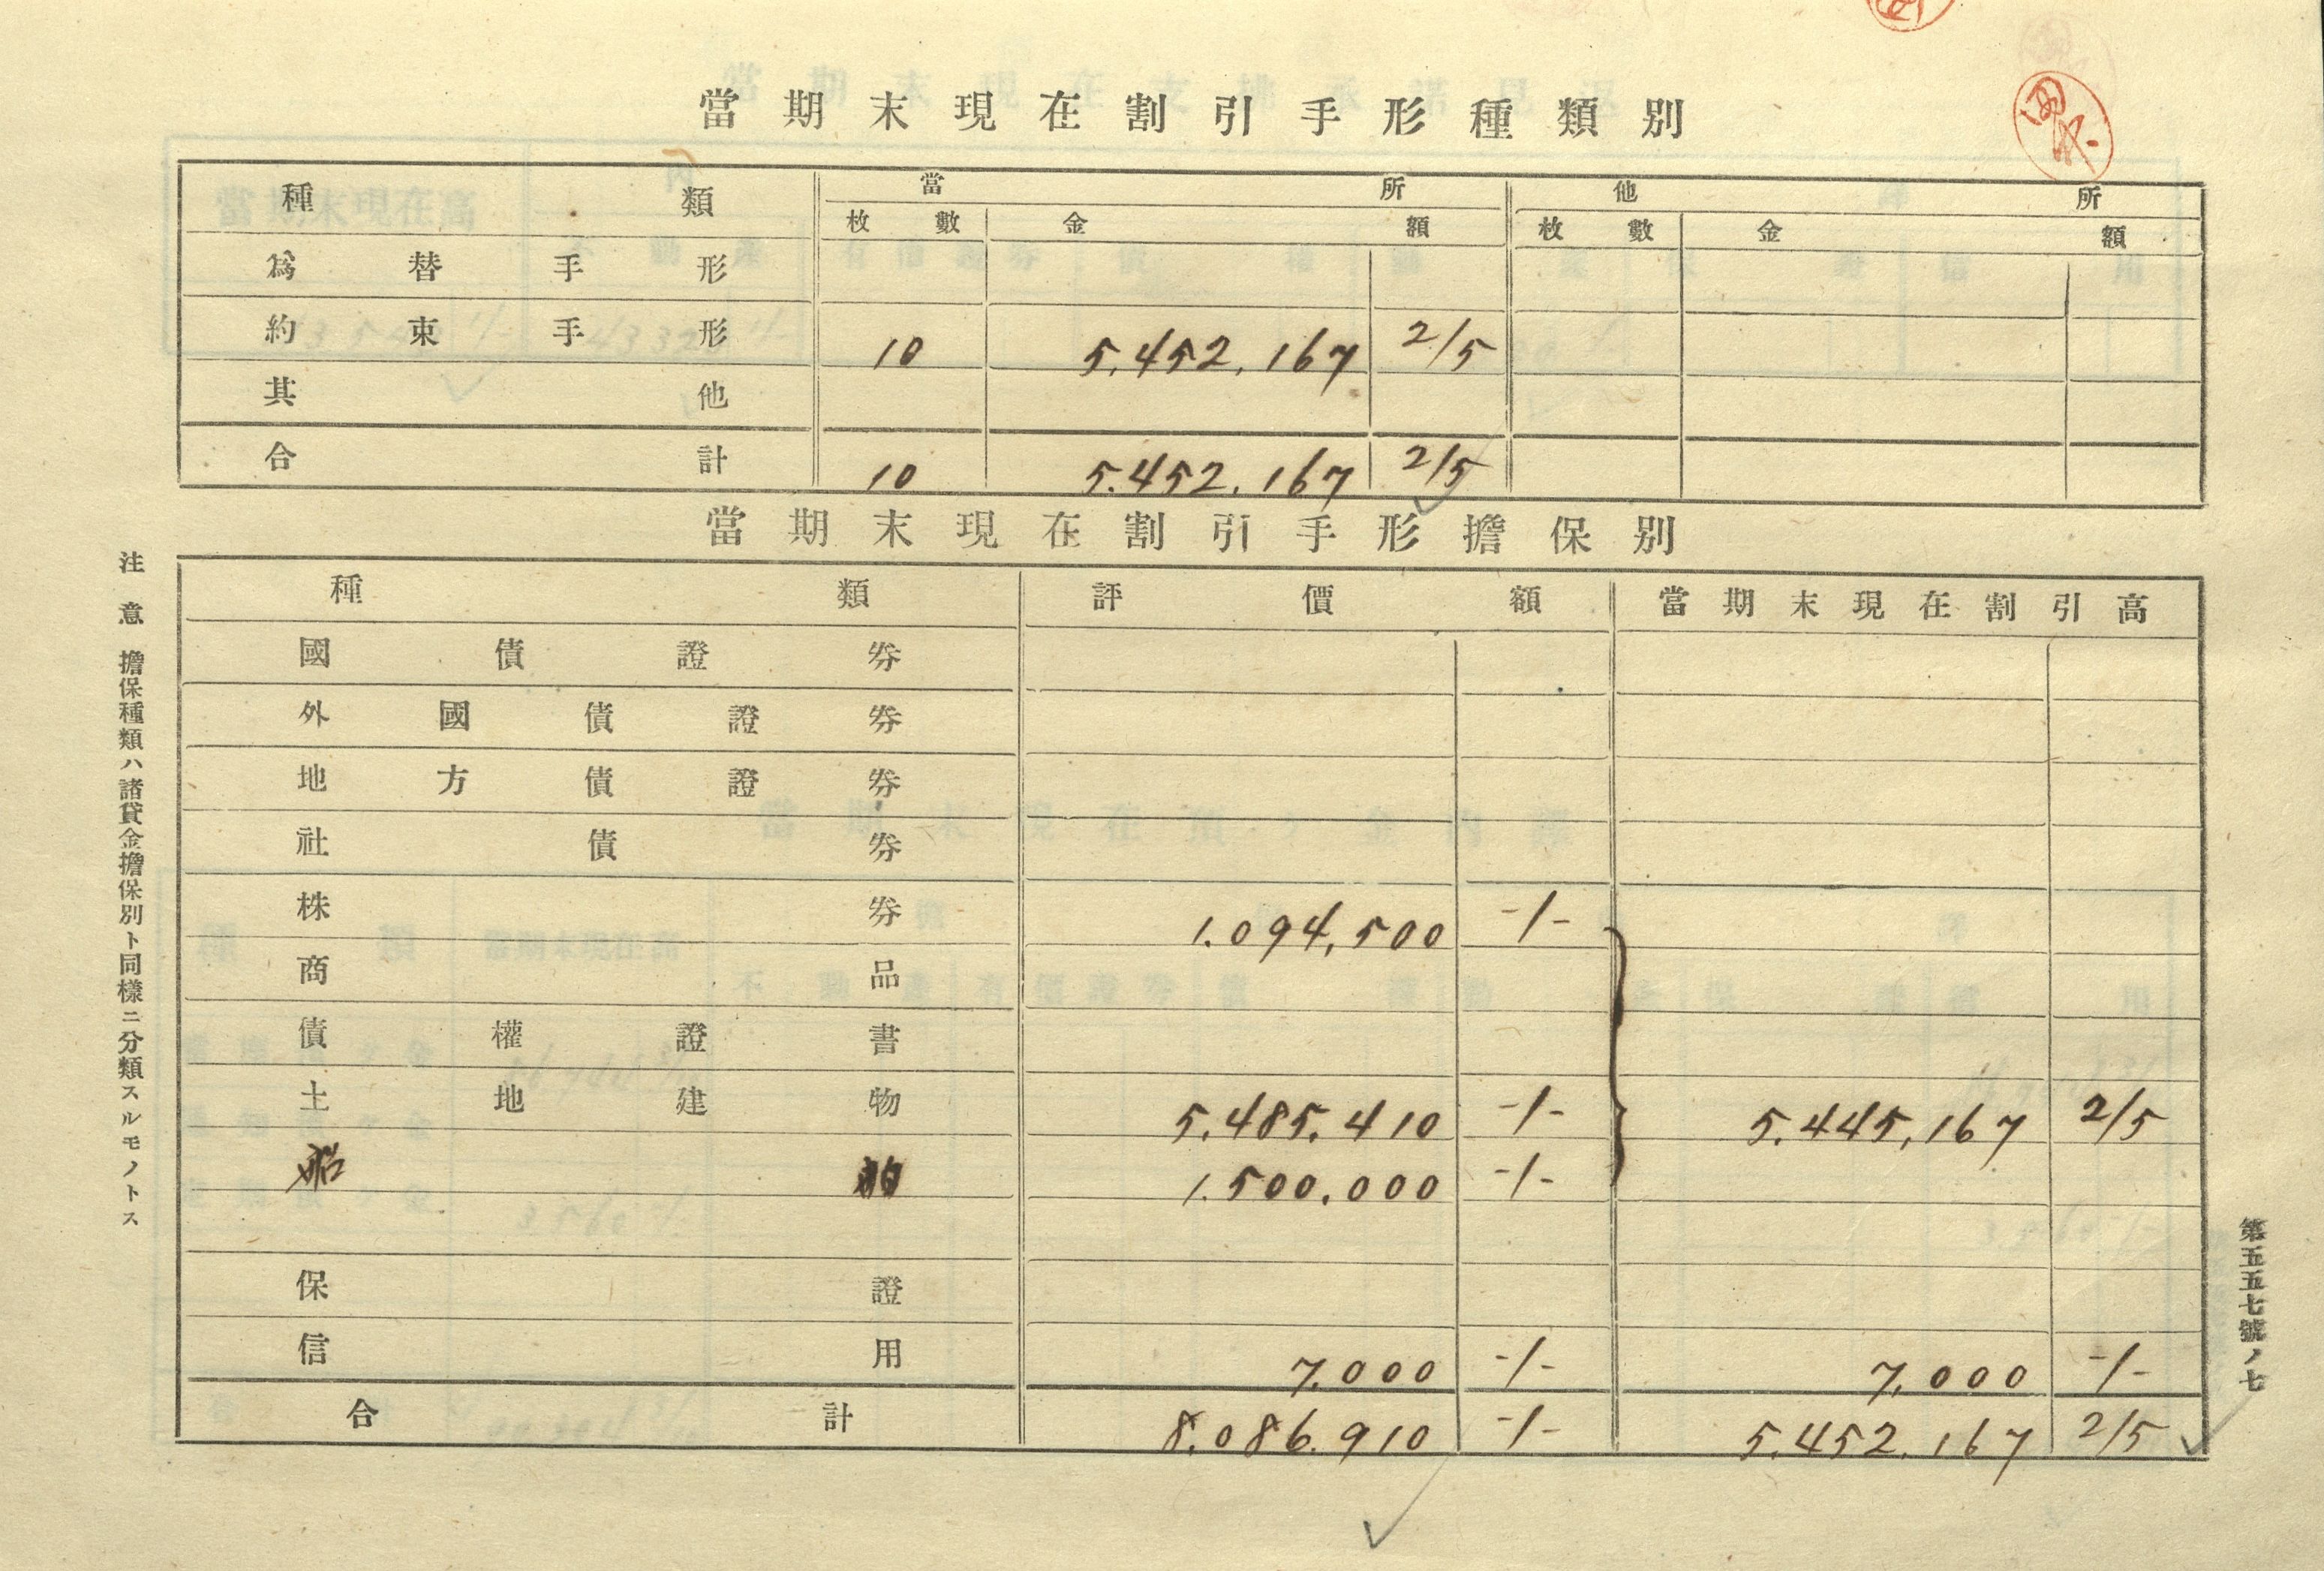 當期末現在割引手形種類別
種類 當所 他所
枚數 金額 枚數 金額
爲替手形
約束手形 10 5.452.167 2/5
其他
合計 10 5.452.167 2/5
當期末現在割引手形擔保別
種類 評價額 當期末現在割引高
國債證券
外國債證券
地方債證券
社債券
株券 1.094,500 -/-
商品
債權證書
土地建物 5.485.410 -/- 5.445,167 2/5
船舶 1.500.000 -/-
保證
信用 7.000 -/- 7,000 -/-
合計 8.086.910 -/- 5.452.167 2/5
注意 擔保種類ハ諸貸金擔保別ト同樣ニ分類スルモノトス
第五五七號ノ七